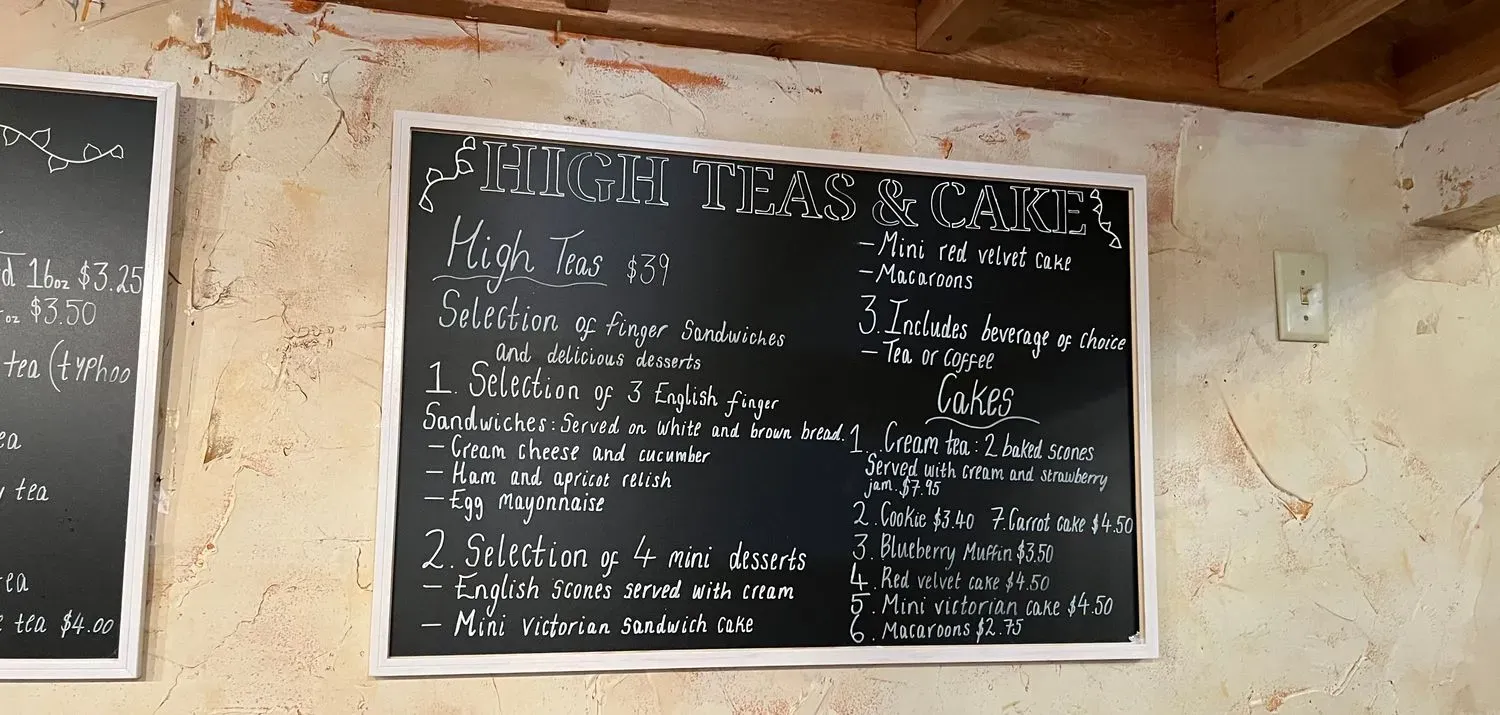 16oz $3.25
oz $3.50
tea (typhoo
tea
tea $4.00
HIGH TEAS & CAKE
High Teas $39
Selection of finger Sandwiches
and delicious desserts
1. Selection of 3 English finger
Sandwiches: Served on white and brown bread.
- Cream cheese and cucumber
- Ham and apricot relish
- Egg mayonnaise
2. Selection of 4 mini desserts
- English Scones served with cream
- Mini Victorian Sandwich cake
- Mini red velvet cake
- Macaroons
3. Includes beverage of choice
- Tea or coffee
Cakes
1. Cream tea: 2 baked scones
Served with cream and strawberry
jam. $7.95
2. Cookie $3.40 7. Carrot cake $4.50
3. Blueberry Muffin $3.50
4. Red velvet cake $4.50
5. Mini victorian cake $4.50
6. Macaroons $2.75